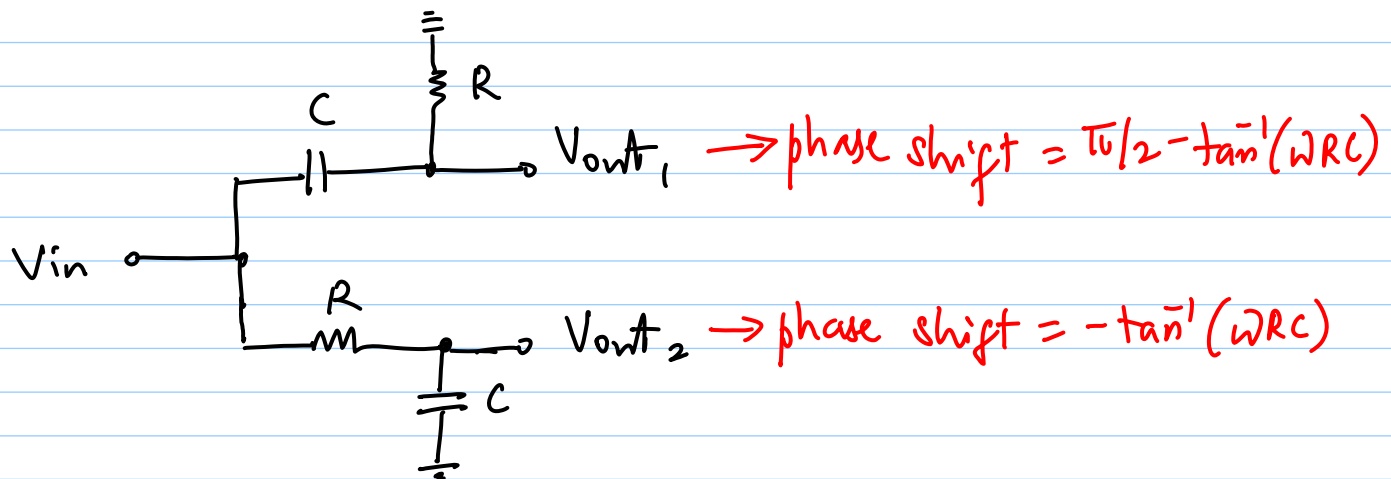 R
C
Vout1 → phase shift = π/2 - tan⁻¹(ωRC)
Vin
R
Vout2 → phase shift = - tan⁻¹(ωRC)
C